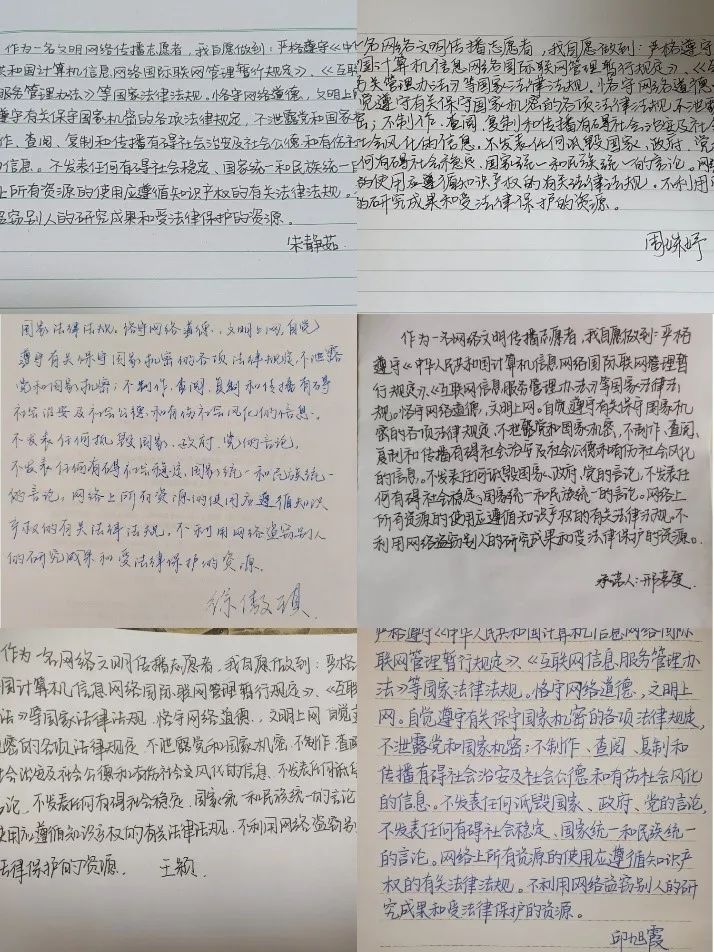 作为一名文明网络传播志愿者，我自愿做到：严格遵守《中
共和国计算机信息网络国际联网管理暂行规定》、《互联
服务管理办法》等国家法律法规。恪守网络道德，文明上网
遵守有关保守国家机密的各项法律规定，不泄露党和国家
作、查阅、复制和传播有碍社会治安及社会公德和有伤社
的信息。不发表任何有碍社会稳定、国家统一和民族统一
上所有资源的使用应遵循知识产权的有关法律法规。
盗窃别人的研究成果和受法律保护的资源。
宋静茹
名网络文明传播志愿者，我自愿做到：严格遵守
国计算机信息网络国际联网管理暂行规定》、《互联
务管理办法》等国家法律法规。恪守网络道德
觉遵守有关保守国家机密的各项法律法规，不泄露
密；不制作、查阅、复制和传播有碍社会治安及社会
会风化的信息。不发表任何诋毁国家、政府、党
何有碍社会稳定、国家统一和民族统一的言论。网络
的使用应遵循知识产权的有关法律法规。不利用
的研究成果和受法律保护的资源。
周姝妤
国家法律法规。恪守网络道德，文明上网，自觉
遵守有关保守国家机密的各项法律规定，不泄露
党和国家机密；不制作、查阅、复制和传播有碍
社会治安及社会公德和有伤社会风化的信息。
不发表任何诋毁国家、政府、党的言论，
不发表任何有碍社会稳定、国家统一和民族统一
的言论。网络上所有资源的使用应遵循知识
产权的有关法律法规，不利用网络盗窃别人
的研究成果和受法律保护的资源。
徐傲
作为一个网络文明传播志愿者，我自愿做到：严格
遵守《中华人民共和国计算机信息网络国际联网管理暂
行规定》、《互联网信息服务管理办法》等国家法律法
规。恪守网络道德，文明上网。自觉遵守有关保守国家机
密的各项法律规定，不泄露党和国家机密，不制作、查阅、
复制和传播有碍社会治安及社会公德和有伤社会风化
的信息。不发表任何诋毁国家、政府、党的言论，不发表任
何有碍社会稳定、国家统一和民族统一的言论。网络上
所有资源的使用应遵循知识产权的有关法律法规。不
利用网络盗窃别人的研究成果和受法律保护的资源。
承诺人：邢
作为一名网络文明传播志愿者，我自愿做到：严格
国计算机信息网络国际联网管理暂行规定》、《互联
法》等国家法律法规。恪守网络道德，文明上网 自觉
密的各项法律规定 不泄露党和国家机密，不制作、查阅
会治安及社会公德和有伤社会风化的信息、不发表任何诋
论，不发表任何有碍社会稳定，国家统一和民族统一的言论
使用应遵循知识产权的有关法律法规，不利用网络盗窃别
法律保护的资源， 王颖
严格遵守《中华人民共和国计算机信息网络国际
联网管理暂行规定》、《互联网信息服务管理办
法》等国家法律法规。恪守网络道德，文明上
网。自觉遵守有关保守国家机密的各项法律规定，
不泄露党和国家机密；不制作、查阅、复制和
传播有碍社会治安及社会公德和有伤社会风化
的信息。不发表任何诋毁国家、政府、党的言论，
不发表任何有碍社会稳定、国家统一和民族统一
的言论。网络上所有资源的使用应遵循知识产
权的有关法律法规。不利用网络盗窃别人的研
究成果和受法律保护的资源。
邱旭霞